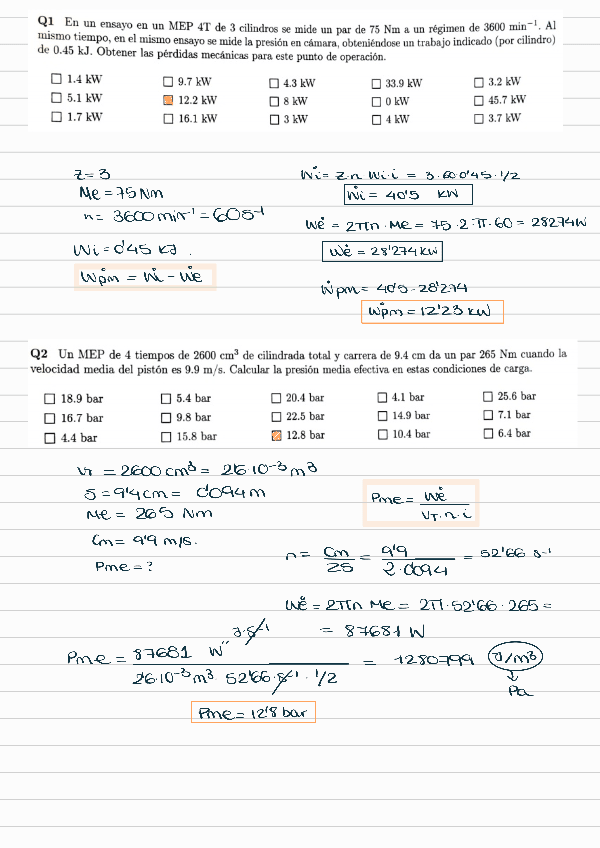 Q1 En un ensayo en un MEP 4T de 3 cilindros se mide un par de 75 Nm a un régimen de 3600 min⁻¹. Al
mismo tiempo, en el mismo ensayo se mide la presión en cámara, obteniéndose un trabajo indicado (por cilindro)
de 0.45 kJ. Obtener las pérdidas mecánicas para este punto de operación.
☐ 1.4 kW ☐ 9.7 kW ☐ 4.3 kW ☐ 33.9 kW ☐ 3.2 kW
☐ 5.1 kW ☒ 12.2 kW ☐ 8 kW ☐ 0 kW ☐ 45.7 kW
☐ 1.7 kW ☐ 16.1 kW ☐ 3 kW ☐ 4 kW ☐ 3.7 kW
z = 3
Me = 75 Nm
n = 3600 min⁻¹ = 60 s⁻¹
Wi = 0'45 kJ.
Ẇpm = Ẇi - Ẇe
Ẇi = z·n·Wi·i = 3·60·0'45·1/2
Ẇi = 40'5 kW
Ẇe = 2πn·Me = 75·2·π·60 = 28274 W
Ẇe = 28'274 kW
Ẇpm = 40'5 - 28'274
Ẇpm = 12'23 kW
Q2 Un MEP de 4 tiempos de 2600 cm³ de cilindrada total y carrera de 9.4 cm da un par 265 Nm cuando la
velocidad media del pistón es 9.9 m/s. Calcular la presión media efectiva en estas condiciones de carga.
☐ 18.9 bar ☐ 5.4 bar ☐ 20.4 bar ☐ 4.1 bar ☐ 25.6 bar
☐ 16.7 bar ☐ 9.8 bar ☐ 22.5 bar ☐ 14.9 bar ☐ 7.1 bar
☐ 4.4 bar ☐ 15.8 bar ☒ 12.8 bar ☐ 10.4 bar ☐ 6.4 bar
VT = 2600 cm³ = 2'6·10⁻³ m³
S = 9'4 cm = 0'094 m
Me = 265 Nm
Cm = 9'9 m/s.
Pme = ?
Pme = Ẇe / VT·n·i
n = Cm / 2S = 9'9 / 2·0'094 = 52'66 s⁻¹
Ẇe = 2πn Me = 2π·52'66·265 =
= 87681 W
Pme = 87681 W'' J·s⁻¹ / 2'6·10⁻³ m³ 52'66·s⁻¹·1/2 = 1280799 J/m³
↓
Pa
Pme = 12'8 bar